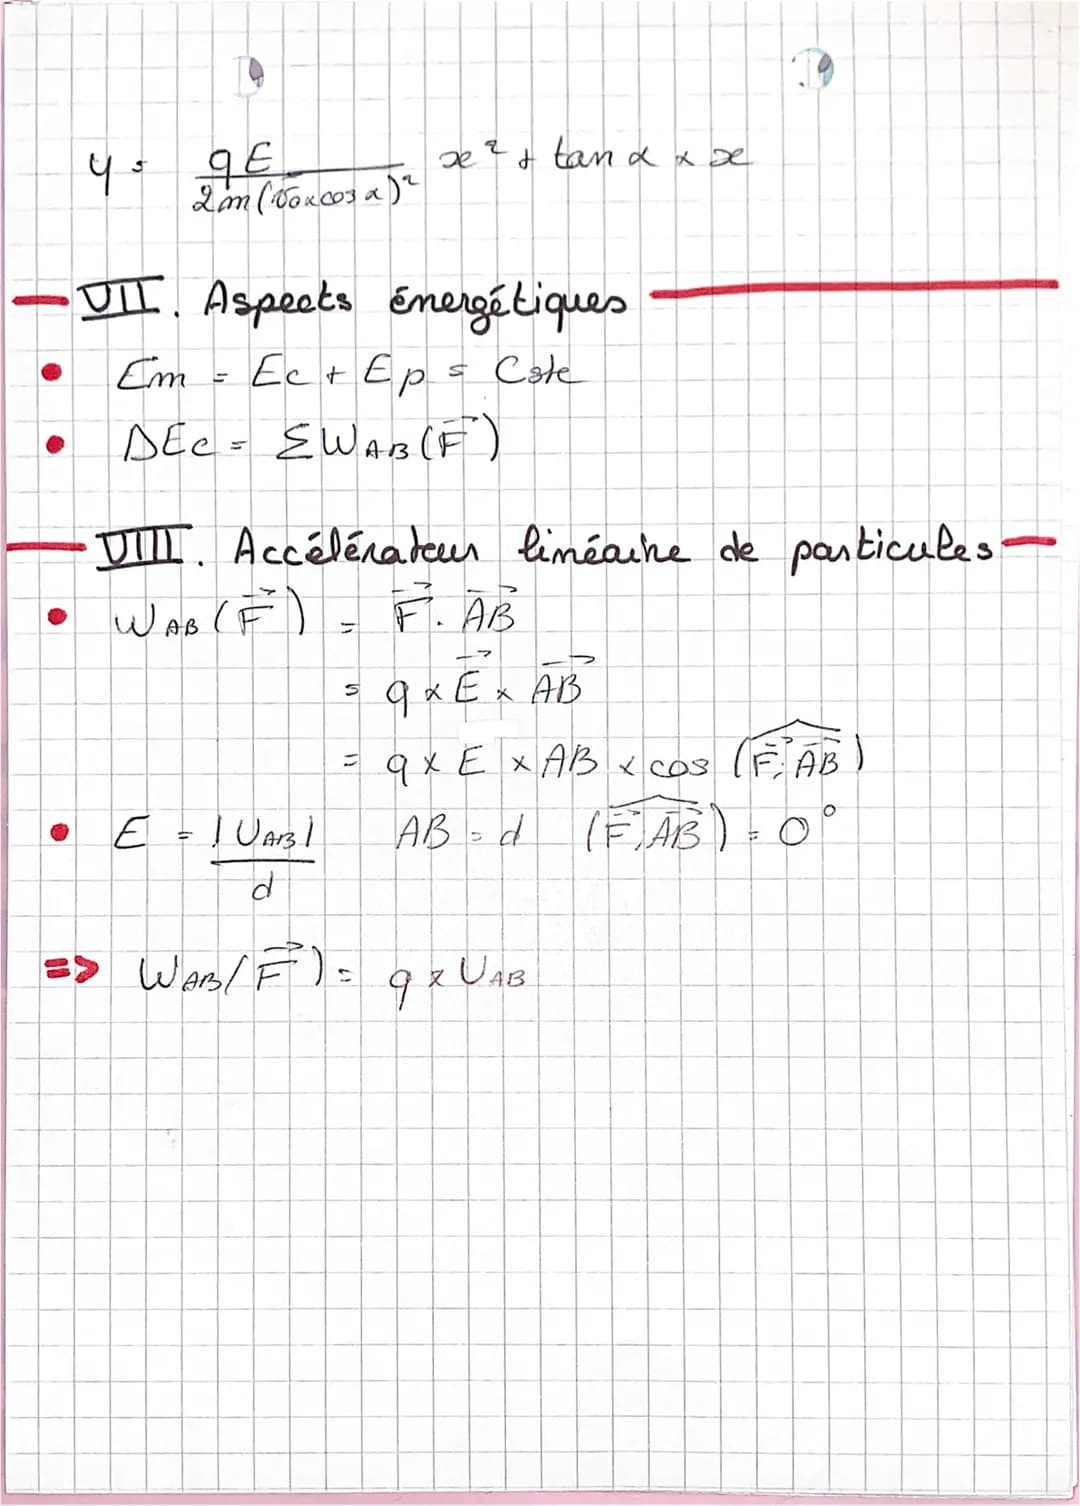 y = qE / 2m(v0×cos α)² x² + tan α × x
VII. Aspects énergétiques
• Em = Ec + Ep = Cste
• ΔEc = ΣW AB (F→)
VIII. Accélérateur linéaire de particules
• W AB (F→) = F→ . AB→
= q × E→ × AB→
= q × E × AB × cos (F→, AB→)
• E = |U AB| / d AB = d (F→, AB→) = 0°
=> W AB (F→) = q × U AB